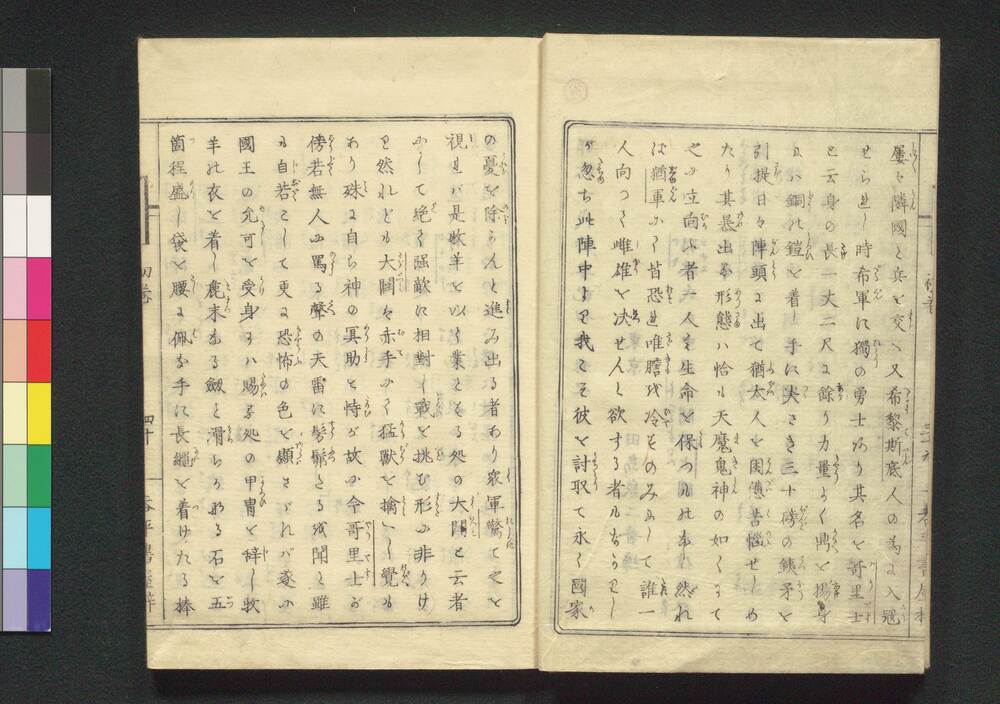 屢々隣國と兵を交へ又希黎斯底人の為に入冠
せられし時希軍に獨の勇士あり其名を哥里士
と云身の長一丈二尺に餘り力量よく鼎を揚身
には銅の鎧を着し手に大さき三十磅の鉄矛を
引提日々陣頭に出て猶太人を困憊苦惱せしめ
たり其暴出る形態は恰も天魔鬼神の如くにて
之に立向ふ者一人も生命を保つものなし然れ
ば猶軍にては皆恐れ唯膽を冷すのみにして誰一
人向つて雌雄を决せんと欲する者もなかりし
が忽ち此陣中より我こそ彼を討取て永く國家
の憂を除かんと進み出る者あり衆軍驚て之を
視れば是牧羊を以て業とする処の大闢と云者
にして絶て强敵に相對し戰を挑む形に非りけ
り然れども大闢は赤手にて猛獣を擒にし覺も
あり殊に自ら神の冥助を恃が故か今哥里士が
傍若無人に罵る聲の天雷に髣髴たるを聞と雖
も自若として更に恐怖の色を顯さゞれば遂に
國王の允可を受身には賜る処の甲冑を辞し牧
羊の衣を着し鹿末なる劔と滑らかなる石を五
箇程盛し袋を腰に佩る手に長繩を着けたる捧
初卷
四十